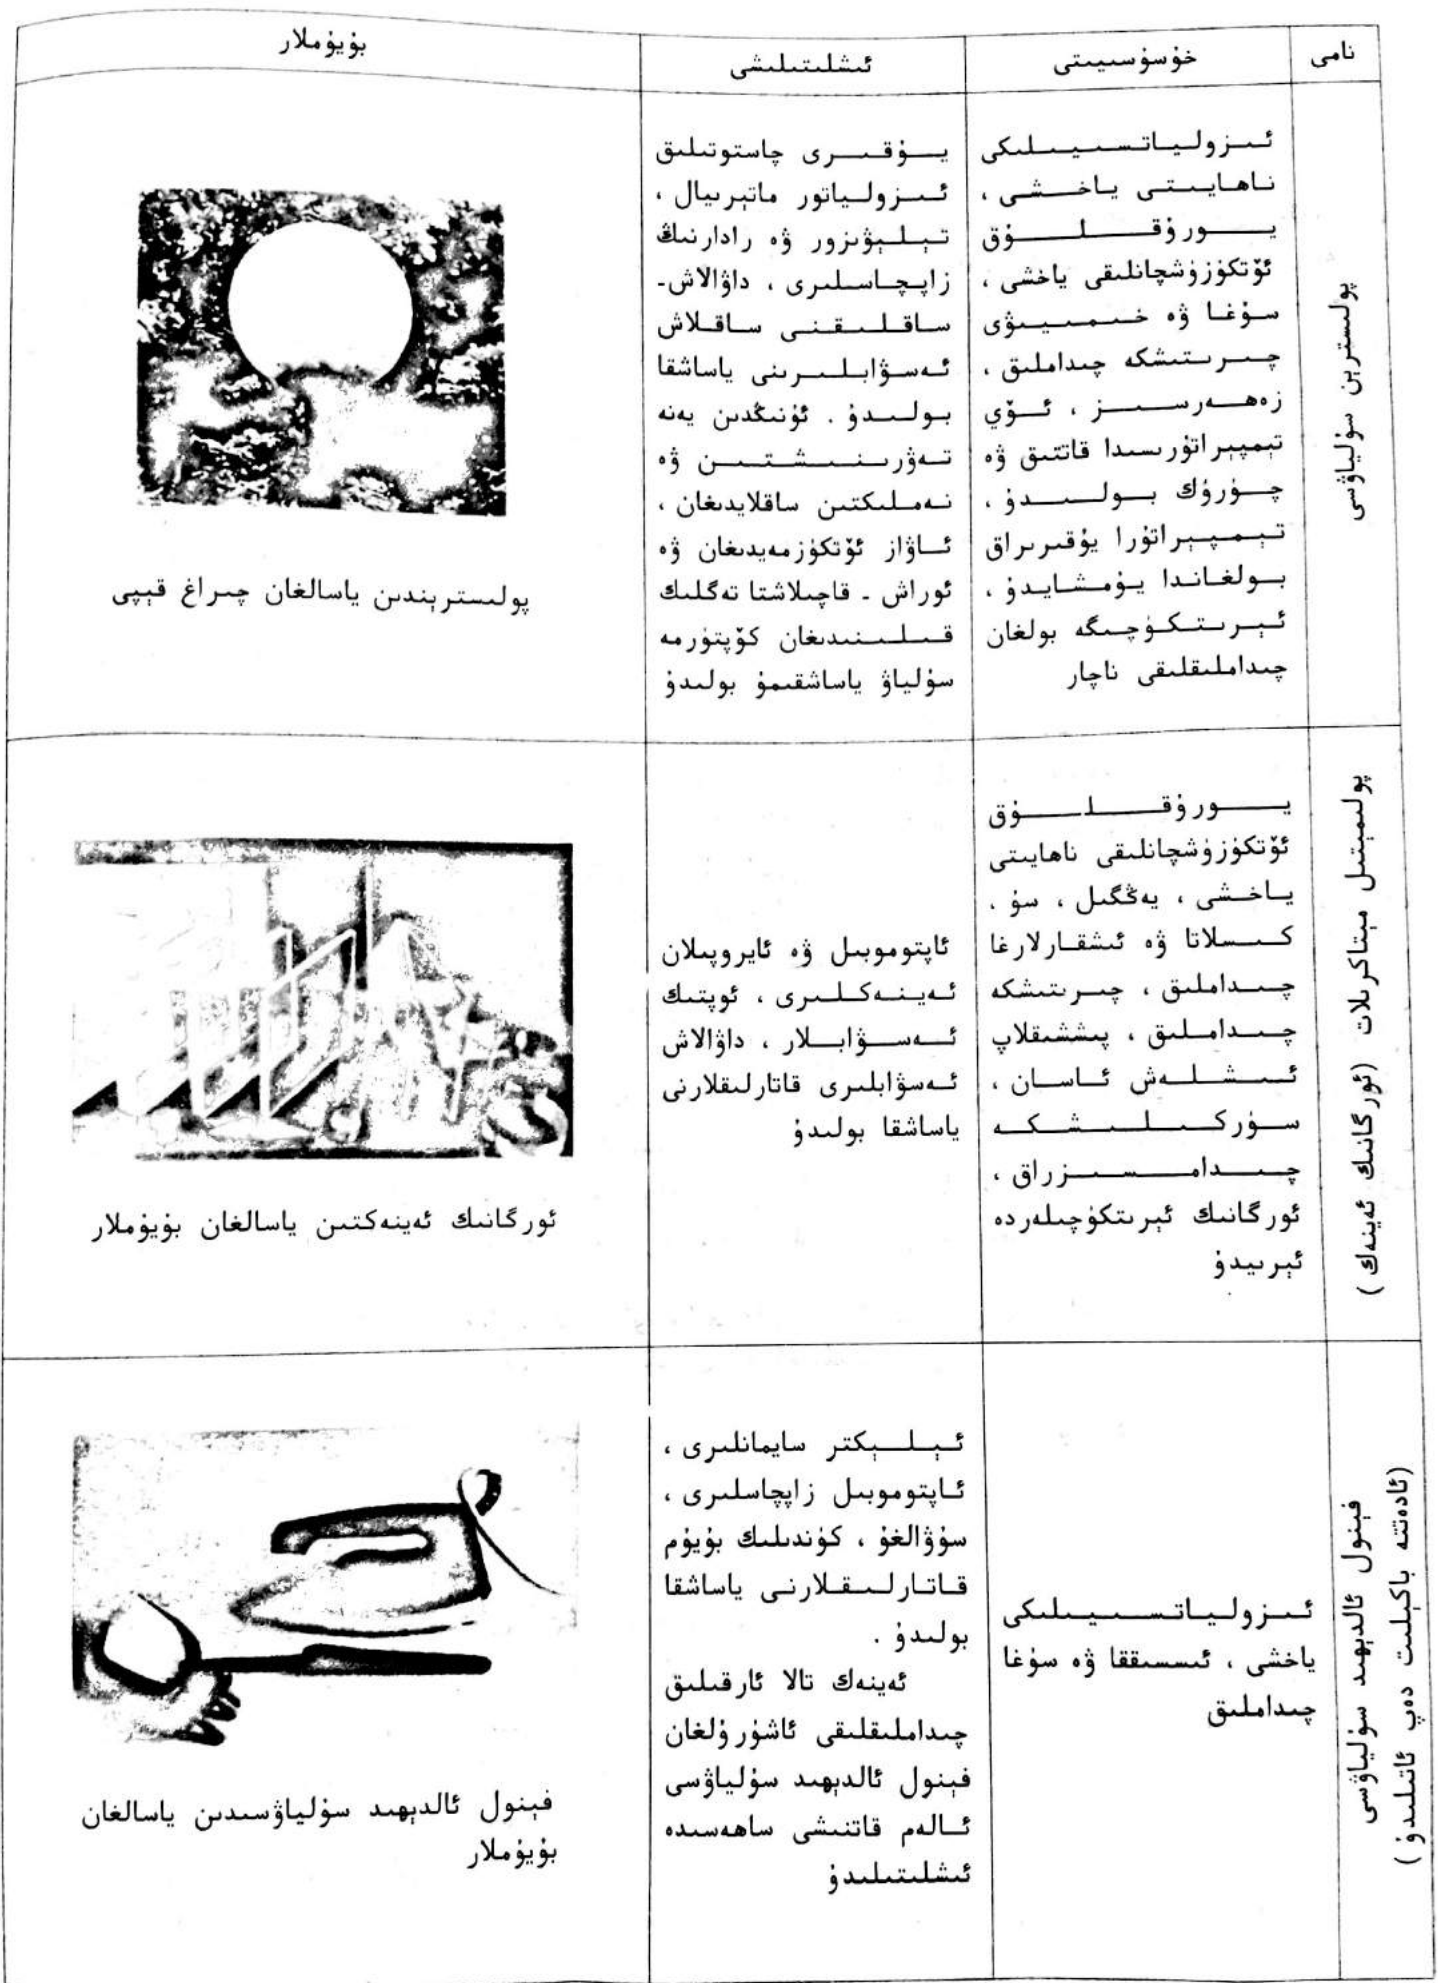 نامى
خۇسۇسىيىتى
ئىشلىتىلىشى
بۇيۇملار
پولىستىرېن سۇلياۋسى
ئىزولياتسىيىلىكى
ناھايىتى ياخشى ،
يورۇقلۇق
ئۆتكۈزۈشچانلىقى ياخشى ،
سۇغا ۋە خىمىيىۋى
چىرىتىشكە چىداملىق ،
زەھەرسىز ، ئۆي
تېمپېراتۇرىسىدا قاتتىق ۋە
چۈرۈك بولىدۇ ،
تېمپېراتۇرا يۇقىرىراق
بولغاندا يۇمشايدۇ ،
ئېرىتكۈچىگە بولغان
چىداملىقلىقى ناچار
يۇقىرى چاستوتىلىق
ئىزولياتور ماتېرىيال ،
تېلېۋىزور ۋە رادارنىڭ
زاپچاسلىرى ، داۋالاش-
ساقلىقنى ساقلاش
ئەسۋابلىرىنى ياساشقا
بولىدۇ . ئۇنىڭدىن يەنە
تەۋرىنىشتىن ۋە
نەملىكتىن ساقلايدىغان ،
ئاۋاز ئۆتكۈزمەيدىغان ۋە
ئوراش - قاچىلاشتا تەڭلىك
قىلىنىدىغان كۆپتۈرمە
سۇلياۋ ياساشقىمۇ بولىدۇ
پولىستىرېندىن ياسالغان چىراغ قېپى
پولىمېتىل مېتاكرىلات (ئورگانىك ئەينەك)
يورۇقلۇق
ئۆتكۈزۈشچانلىقى ناھايىتى
ياخشى ، يەڭگىل ، سۇ ،
كىسلاتا ۋە ئىشقارلارغا
چىداملىق ، چىرىتىشكە
چىداملىق ، پىششىقلاپ
ئىشلەش ئاسان ،
سۈركىلىشكە
چىدامسىزراق ،
ئورگانىك ئېرىتكۈچىلەردە
ئېرىيدۇ
ئاپتوموبىل ۋە ئايروپىلان
ئەينەكلىرى ، ئوپتىك
ئەسۋابلار ، داۋالاش
ئەسۋابلىرى قاتارلىقلارنى
ياساشقا بولىدۇ
ئورگانىك ئەينەكتىن ياسالغان بۇيۇملار
فېنول ئالدېھىد سۇلياۋسى
(ئادەتتە باكېلىت دەپ ئاتىلىدۇ)
ئىزولياتسىيىلىكى
ياخشى ، ئىسسىققا ۋە سۇغا
چىداملىق
ئېلېكتر سايمانلىرى ،
ئاپتوموبىل زاپچاسلىرى ،
سۇۋالغۇ ، كۈندىلىك بۇيۇم
قاتارلىقلارنى ياساشقا
بولىدۇ .
ئەينەك تالا ئارقىلىق
چىداملىقلىقى ئاشۇرۇلغان
فېنول ئالدېھىد سۇلياۋسى
ئالەم قاتنىشى ساھەسىدە
ئىشلىتىلىدۇ
فېنول ئالدېھىد سۇلياۋسىدىن ياسالغان
بۇيۇملار